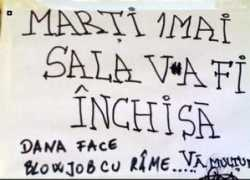 MARȚI 1 MAI
SALA VA FI
ÎNCHISĂ
DANA FACE
BLOWJOB CU RÂME.....VĂ MULȚUM